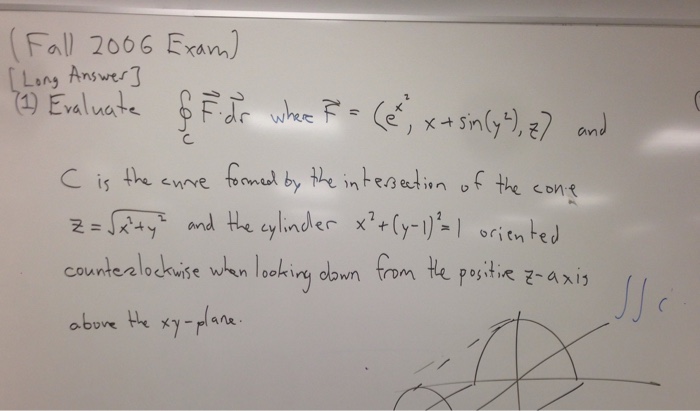 (Fall 2006 Exam)
[Long Answer]
(1) Evaluate ∮_C F⃗·dr⃗ where F⃗ = (e^{x²}, x+sin(y²), z) and
C is the curve formed by the intersection of the cone
z = √x²+y² and the cylinder x²+(y-1)²=1 oriented
counterclockwise when looking down from the positive z-axis
above the xy-plane.
∫∫